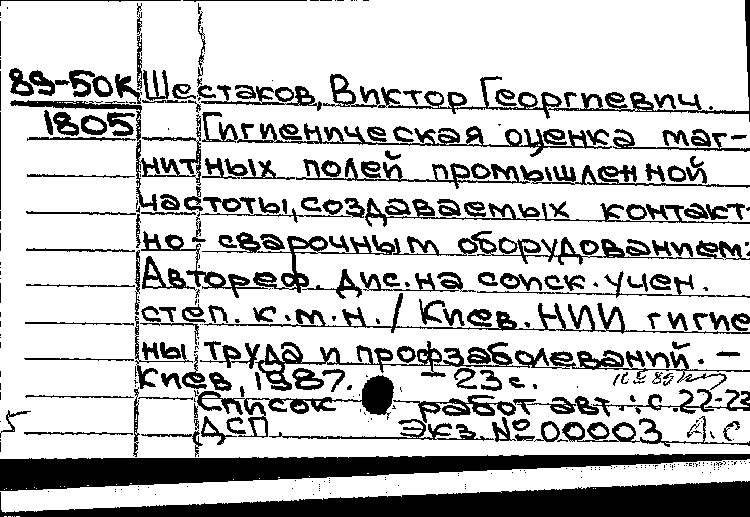 89-50К Шестаков, Виктор Георгиевич.
1805 Гигиеническая оценка маг-
нитных полей промышленной
частоты, создаваемых контакт-
но-сварочным оборудованием:
Автореф. дис. на соиск. учен.
степ. к.м.н. / Киев. НИИ гигие
ны труда и профзаболеваний. –
Киев, 1987. – 23 с.
Список работ авт.: с. 22-23
5 ДСП. Экз. № 00003 А.С